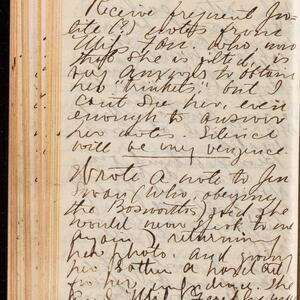 Receive frequent [im]po-
lite (?) notes from
Miss Van. who, now
that she is jilted, is
very anxious to obtain
her "trinkets", but I
can't see her, even
enough to answer
her notes. Silence
will be my vengence.
Wrote a note to Jen
(who, obeying
the Bosworths, said she
would never speak to me
again) returning
her photo. and giving
her &
to her. She